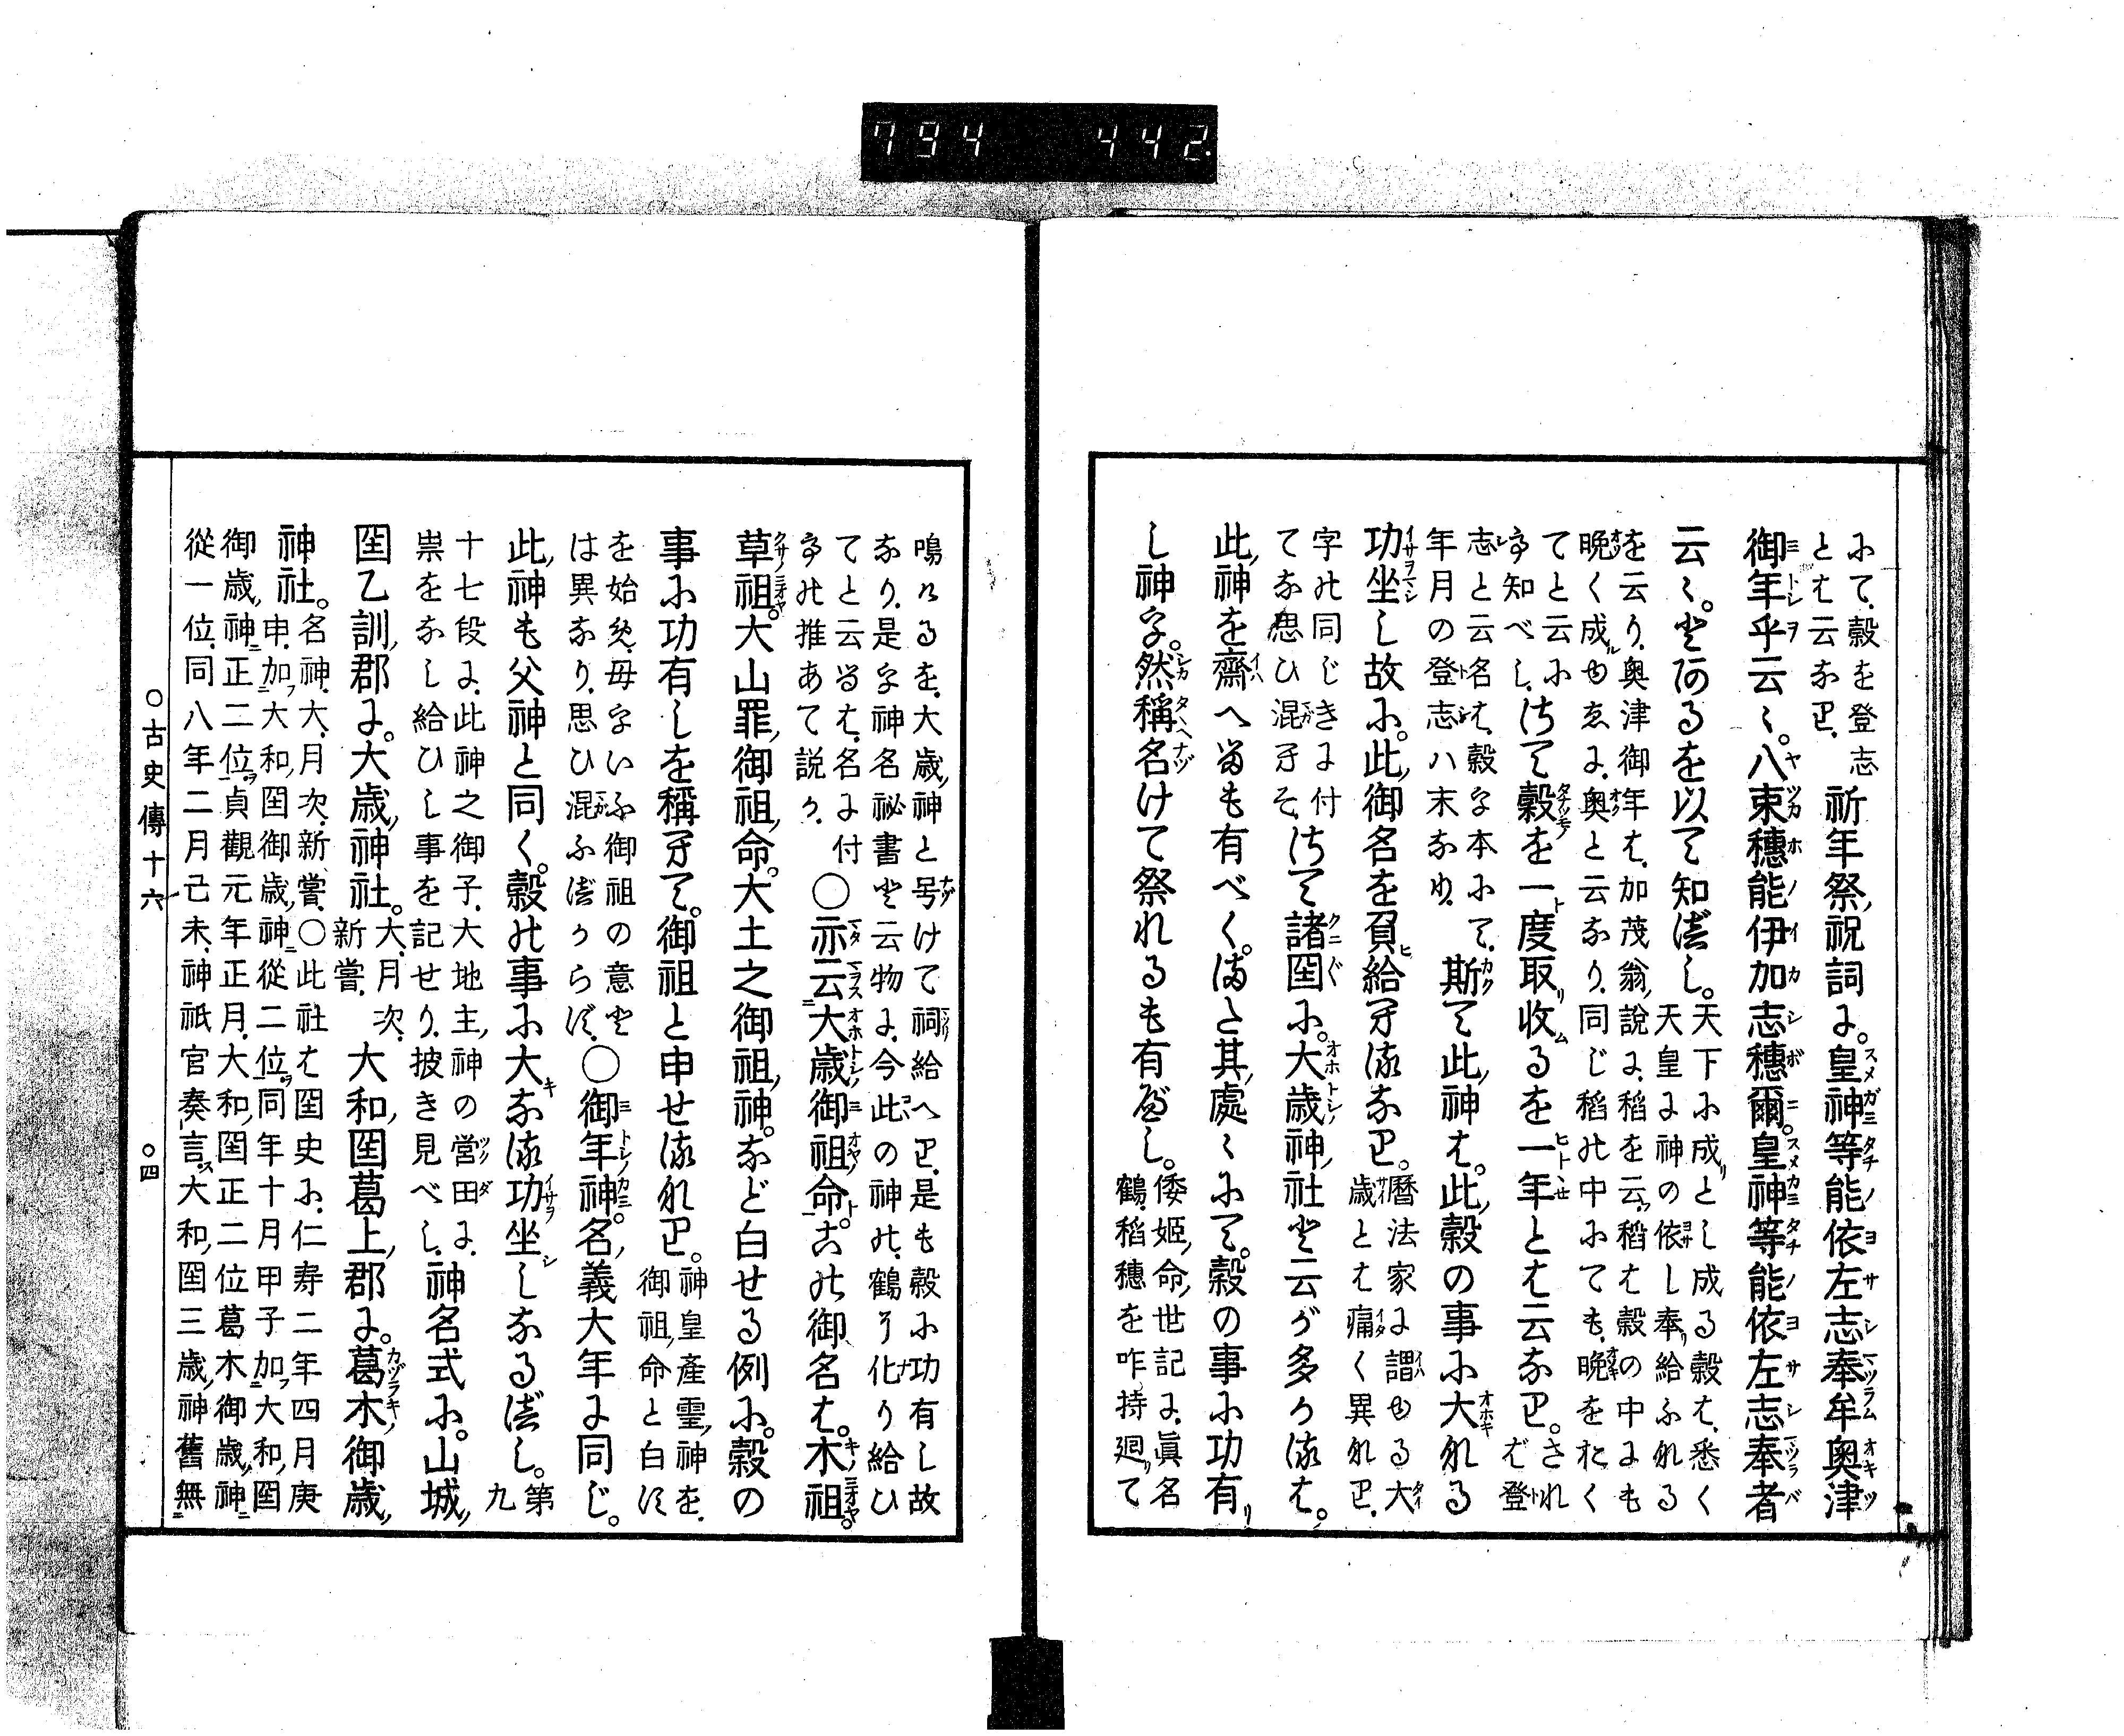 794 442.
にて、穀を登志
とは云なり、
祈年祭祝詞に。皇神等能依左志奉牟奥津
御年乎云々。八束穗能伊加志穗爾。皇神等能依左志奉者
云々。とあるを以て知べし。
天下に成とし成る穀は、悉く
天皇に神の依し奉給ふれる
を云り、奥津御年は、加茂翁説に、稻を云、稻は穀の中にも
晩く成ゆゑに、奥と云なり、同じ稻の中にても、晩をおく
てと云に
て知べし、
さて穀を一度取收るを一年とは云なり。
されば登
志と云名は、穀ぞ本にて、
年月の登志ハ末なり、
斯て此神は。此穀の事に大なる
功坐し故に。此御名を負給へるなり。
暦法家に謂ゆる大
歳とは痛く異れり、
字の同じきに付
てな思ひ混へそ、
さて諸国に。大歳神社と云が多かるは。
此神を齋へるも有べく。また其處々にて。穀の事に功有
し神を。然稱名けて祭れるも有べし。
倭姫命世記に、眞名
鶴、稻穗を咋持廻て
鳴けるを、大歳神と号けて祠給へり、是も穀に功有し故
なり、是を神名秘書と云物に、今此の神の、鶴に化り給ひ
てと云るは、名に付
ての推あて説か、
○亦云大歳御祖命。古の御名は。木祖。
草祖。大山罪御祖命。大土之御祖神。など白せる例に。穀の
事に功有しを稱へて。御祖と申せるなり。
神皇産靈神を、
御祖命と白に
を始め、毋をいふ御祖の意と
は異なり、思ひ混ふべからず、
○御年神。名義大年に同じ。
此神も父神と同く。穀の事に大なる功坐しなるべし。
第
九
十七段に、此神之御子、大地主神の営田に、
祟をなし給ひし事を記せり、披き見べし、
神名式に。山城
国乙訓郡に。大歳神社。
大、月次、
新嘗、
大和国葛上郡に。葛木御歳
神社。
名神、大、月次、新嘗、○此社は国史に、仁寿二年四月庚
申、加大和国御歳神從二位、同年十月甲子加大和国
御歳神正二位、貞觀元年正月、大和国正二位葛木御歳神
從一位、同八年二月己未、神祇官奏言、大和国三歳神舊無
○古史傳十六
○四